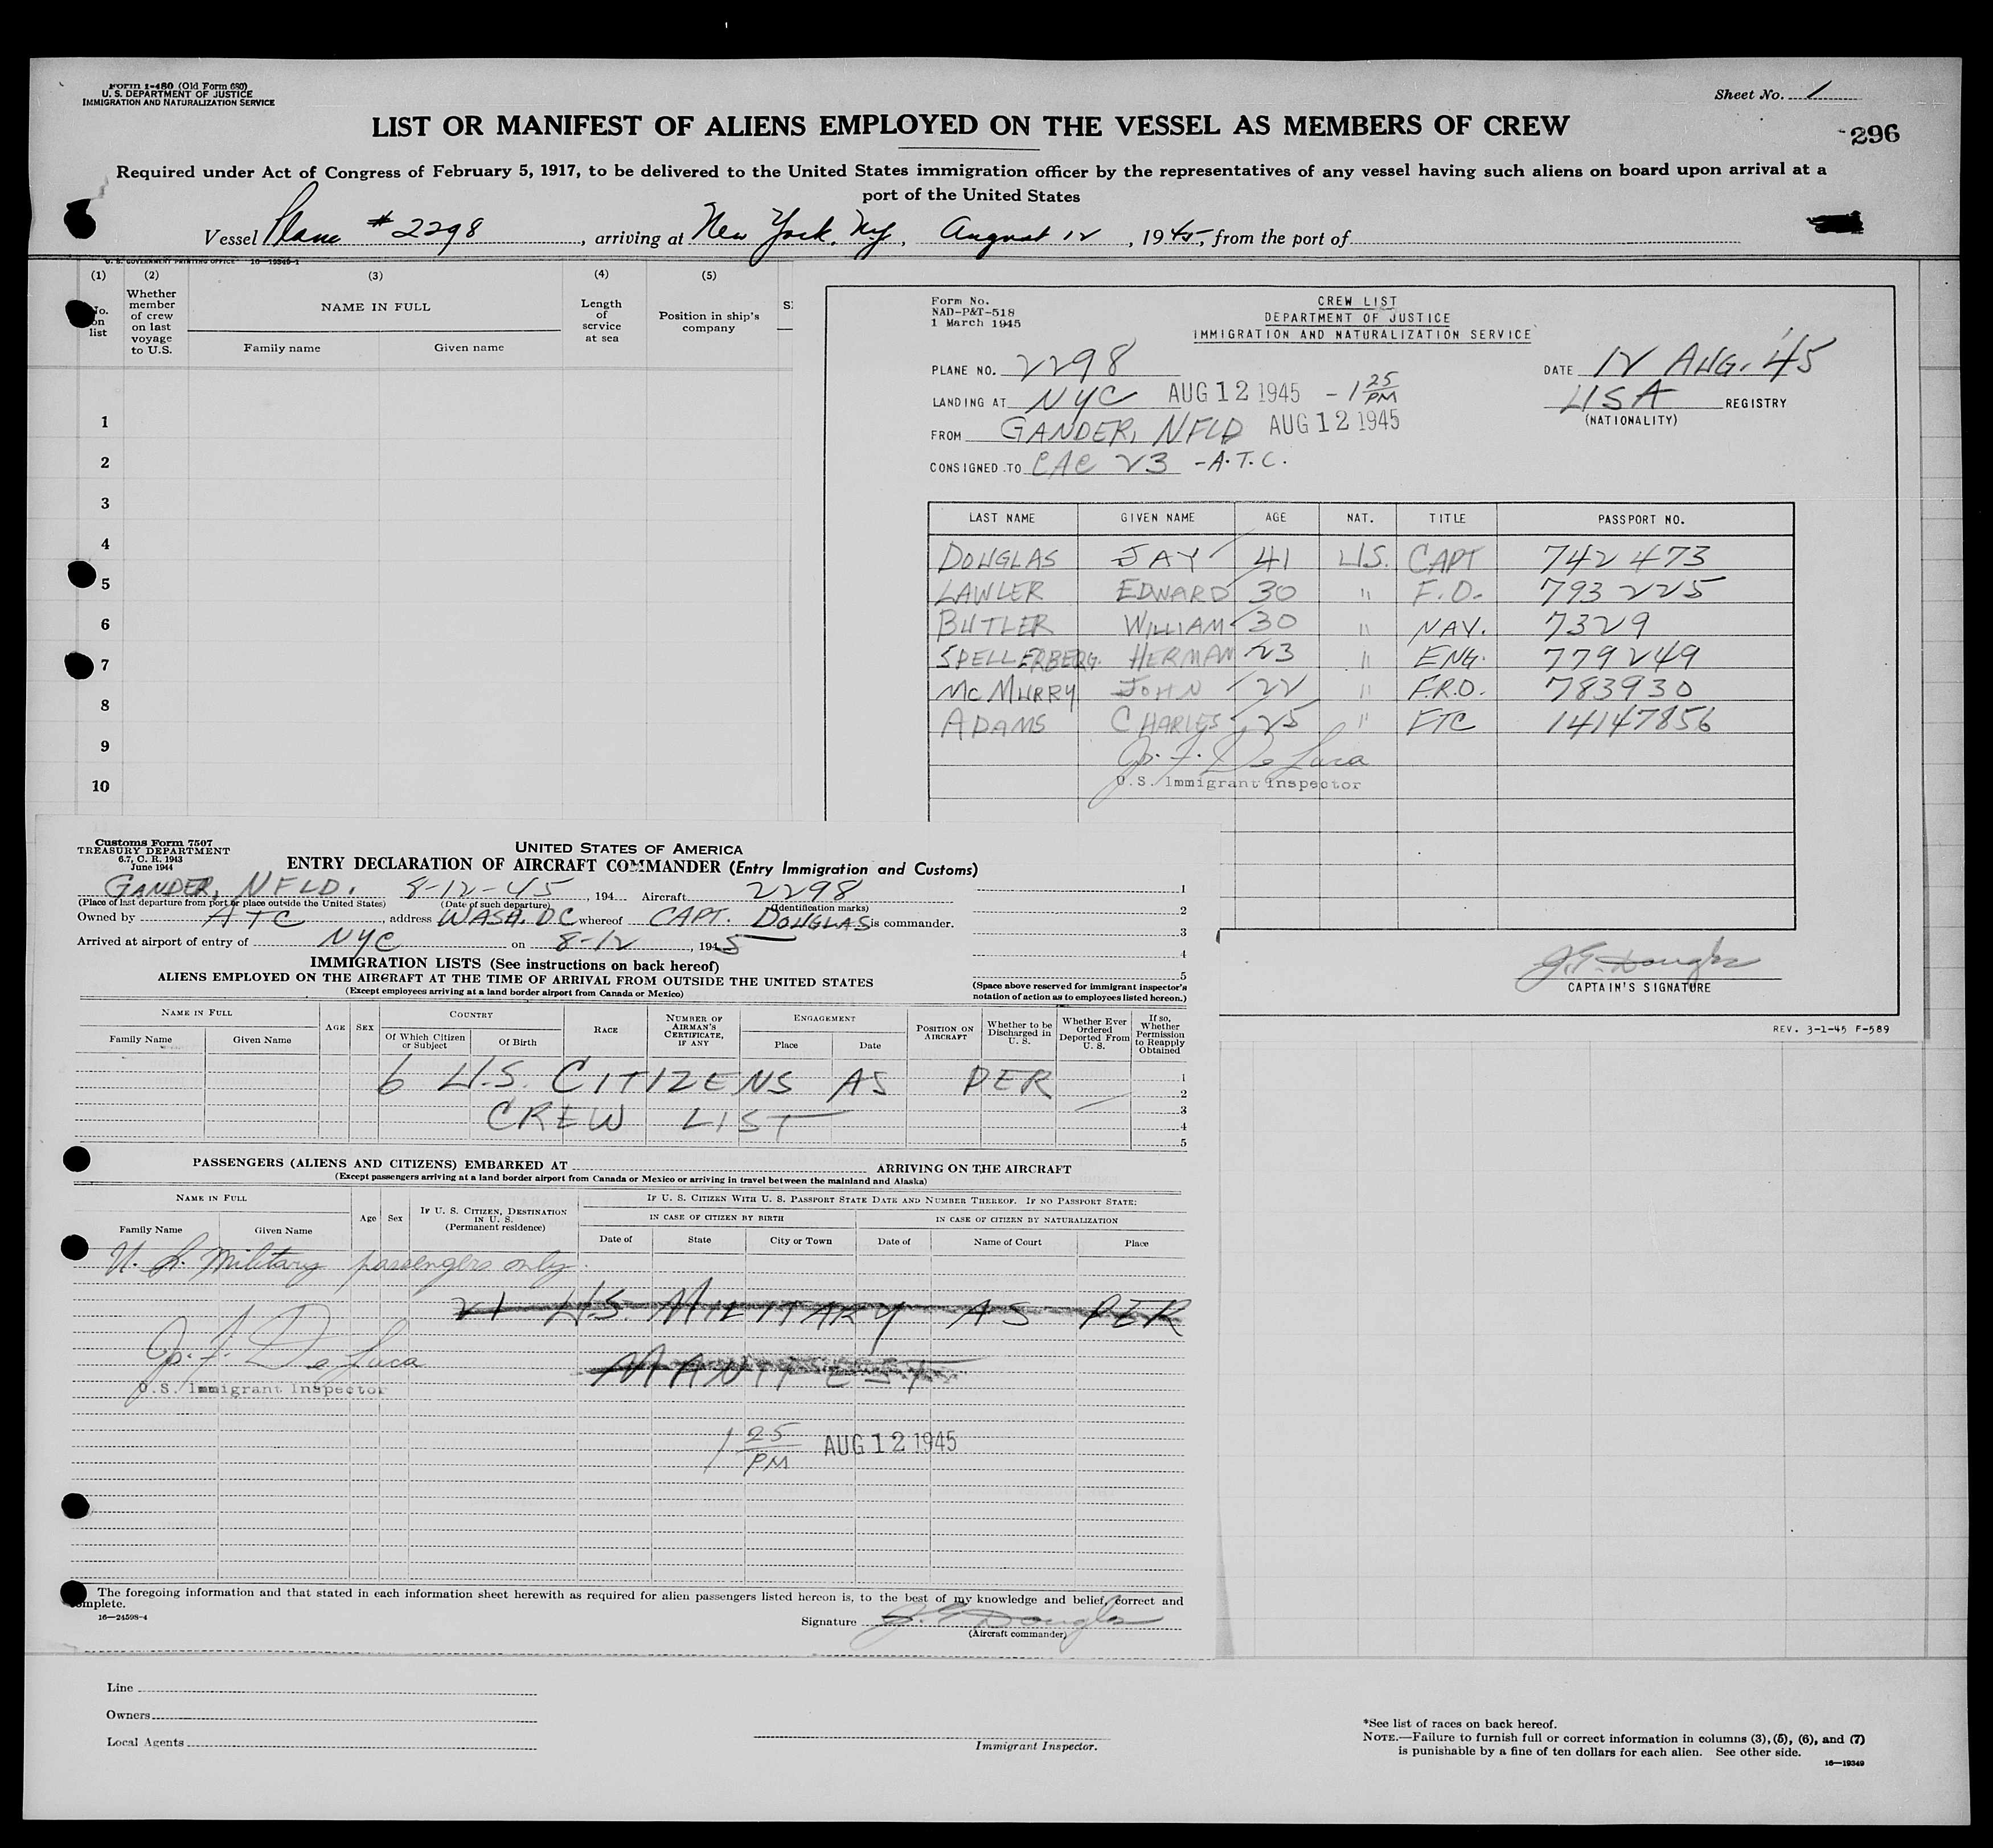 Form I-480 (Old Form 680)
U. S. DEPARTMENT OF JUSTICE
IMMIGRATION AND NATURALIZATION SERVICE
Sheet No. 1
LIST OR MANIFEST OF ALIENS EMPLOYED ON THE VESSEL AS MEMBERS OF CREW
296
Required under Act of Congress of February 5, 1917, to be delivered to the United States immigration officer by the representatives of any vessel having such aliens on board upon arrival at a
port of the United States
Vessel Plane #2298, arriving at New York, Ny., August 12, 1945, from the port of
U. S. GOVERNMENT PRINTING OFFICE 16—19349-1
(1) (2) (3) (4) (5)
No. on list
Whether member of crew on last voyage to U.S.
NAME IN FULL
Family name Given name
Length of service at sea
Position in ship's company
1
2
3
4
5
6
7
8
9
10
Form No.
NAD-P&T-518
1 March 1945
CREW LIST
DEPARTMENT OF JUSTICE
IMMIGRATION AND NATURALIZATION SERVICE
PLANE NO. 2298 DATE 12 AUG. '45
LANDING AT NYC AUG 12 1945 - 1 25 PM USA REGISTRY
(NATIONALITY)
FROM GANDER, NFLD AUG 12 1945
CONSIGNED TO CAC 23 -A.T.C.
LAST NAME GIVEN NAME AGE NAT. TITLE PASSPORT NO.
DOUGLAS JAY 41 U.S. CAPT 742 473
LAWLER EDWARD 30 " F.O. 793 225
BUTLER WILLIAM 30 " NAV. 7329
SPELLERBERG. HERMAN 23 " ENG. 779249
MCMURRY JOHN 22 " F.R.O. 783930
ADAMS CHARLES 25 " FTC 14147856
J. F. De Luca
U.S. Immigrant Inspector
J. E. Douglas
CAPTAIN'S SIGNATURE
REV. 3-1-45 F-589
Customs Form 7507
TREASURY DEPARTMENT
6.7, C. R. 1943
June 1944
UNITED STATES OF AMERICA
ENTRY DECLARATION OF AIRCRAFT COMMANDER (Entry Immigration and Customs)
GANDER, NFLD. 8-12-45, 194 Aircraft 2298
(Place of last departure from port or place outside the United States) (Date of such departure) (Identification marks)
Owned by ATC, address WASH. DC whereof CAPT. DOUGLAS is commander.
Arrived at airport of entry of NYC on 8-12, 1945
1
2
3
4
5
(Space above reserved for immigrant inspector's notation of action as to employees listed hereon.)
IMMIGRATION LISTS (See instructions on back hereof)
ALIENS EMPLOYED ON THE AIRCRAFT AT THE TIME OF ARRIVAL FROM OUTSIDE THE UNITED STATES
(Except employees arriving at a land border airport from Canada or Mexico)
NAME IN FULL
Family Name Given Name
AGE SEX
COUNTRY
Of Which Citizen or Subject Of Birth
RACE
NUMBER OF AIRMAN'S CERTIFICATE, IF ANY
ENGAGEMENT
Place Date
POSITION ON AIRCRAFT
Whether to be Discharged in U. S.
Whether Ever Ordered Deported From U. S.
If so, Whether Permission to Reapply Obtained
6 U.S. CITIZENS AS PER
CREW LIST
1
2
3
4
5
PASSENGERS (ALIENS AND CITIZENS) EMBARKED AT ARRIVING ON THE AIRCRAFT
(Except passengers arriving at a land border airport from Canada or Mexico or arriving in travel between the mainland and Alaska)
NAME IN FULL
Family Name Given Name
Age Sex
IF U. S. CITIZEN, DESTINATION IN U. S.
(Permanent residence)
IF U. S. CITIZEN WITH U. S. PASSPORT STATE DATE AND NUMBER THEREOF. IF NO PASSPORT STATE:
IN CASE OF CITIZEN BY BIRTH IN CASE OF CITIZEN BY NATURALIZATION
Date of State City or Town Date of Name of Court Place
U. S. Military passengers only.
21 U.S. MILITARY AS PER
MANIFEST
J. F. De Luca
U.S. Immigrant Inspector
1 25 PM AUG 12 1945
The foregoing information and that stated in each information sheet herewith as required for alien passengers listed hereon is, to the best of my knowledge and belief, correct and
complete.
16—24598-4
Signature J. E. Douglas
(Aircraft commander)
Line
Owners
Local Agents
Immigrant Inspector.
*See list of races on back hereof.
NOTE.—Failure to furnish full or correct information in columns (3), (5), (6), and (7)
is punishable by a fine of ten dollars for each alien. See other side.
16—19349